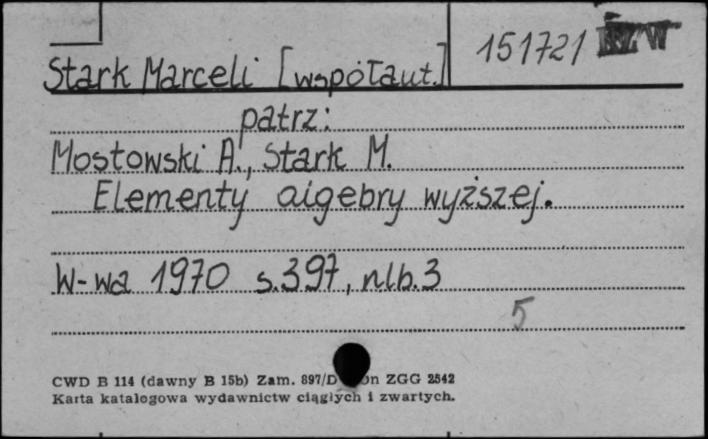 151721
Stark Marceli [współaut.]
patrz:
Mostowski A., Stark M.
Elementy algebry wyższej.
W-wa 1970 s.397, nlb.3
5
CWD B 114 (dawny B 15b) Zam. 897/D ZGG 2542
Karta katalogowa wydawnictw ciągłych i zwartych.